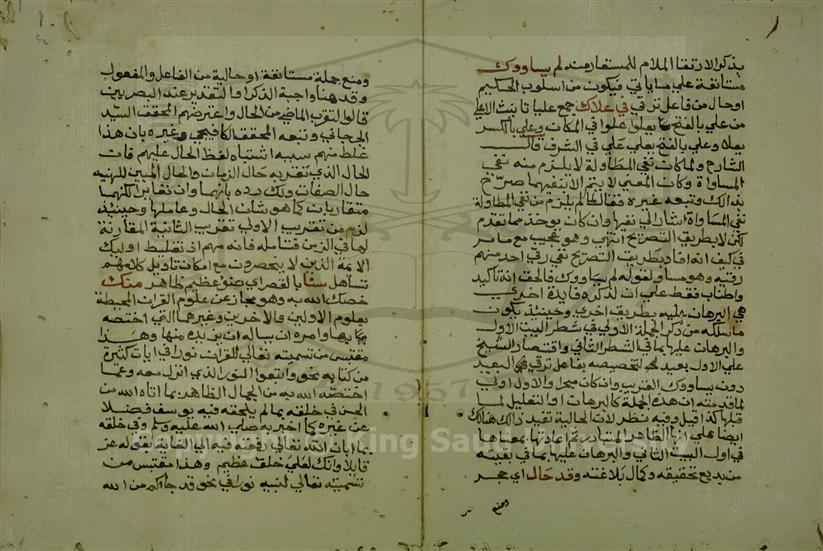 بذكر الارتقا الملام للمستعار منه لم يساووك
مستانفة علي ما ياتي فيكون من اسلوب الحكيم
اوحال من فاعل ترقي في علاك جمع عليا تانيث الاعلي
من علي بالفتح يعلو علوا في المكان وعلي بالكسر
يعلا وعلي بالفتح يعلي علي في الشرف قال
الشارح ولما كان نفي المطاولة لا يلزم منه نفي
المساواة وكان المعني لا يتم الا بنفيهما صرح
بذالك وتبعه غيره فقال لما لم يلزم من نفي المطاولة
نفي المساواة اشار الي نفيها وان كان يوخذ مما تقدم
لكن لا بطريق التصريح انتهي وهو عجيب مع ما مر
في كيف انه افاد بطريق التصريح نفي رقي احد منهم
رقيه وهو مساو لقوله لم يساووك فالحق انه تاكيد
واطناب فقط علي ان لذكره فايدة اخري
هي البرهان عليه بطريق اخري وحينيذ يكون
ما سلكه من ذكر الجملة الاولي في شطر البيت الاول
والبرهان عليها بما في الشطر الثاني واقتصار الشيخ
علي الاول بعيد تخصيصه بفاعل ترقي البعيد
دون يساووك القريب وان كان صحيحا والاول اولي
لما قدمته ان هذه الجملة كالبرهان او التعليل لما
قبلها كذا قيل وفيه نظر لان الحالية تفيد ذالك هنالك
ايضا علي ان الظاهر المتبادر اعادتها بمعناها
في اول البيت الثاني والبرهان عليها بما في بقيته
من بديع تحقيقه وكمال بلاغته وقد حال اي حجز
ومنع
ومنع جملة مستانفة او حالية من الفاعل والمفعول
وقد هنا واجبة الذكر او التقدير عند البصريين
قالوا لتقرب الماضي من الحال واعترضهم المحقق السيد
الجرجاني وتبعه المحقق الكافيجي وغيره بان هذا
غلط منهم سببه اشتباه لفظ الحال عليهم فان
الحال الذي تقربه حال الزمان والحال المبين للهيئة
حال الصفات ولك رده بانهما وان تغايرا لكنهما
متقاربان كما هو شان الحال وعاملها وحينيذ
لزم من تقريب الاولي تقريب الثانية المقارنة
لها في الزمن فتامله فانه مهم اذ تغليط اوليك
الايمة الذين لا ينحصرون مع امكان تاويل كلامهم
تساهل سنا بالقصر اي ضوء عظيم ظاهر منك
خصك الله به وهو مجاز عن علوم القران المحيطة
بعلوم الاولين والاخرين وغيرها التي اختصه
بها وامره ان يساله ان يزيده منها وهذا
مقتبس من تسميته تعالي للقران نورا في ايات كثيرة
من كتابه نحو واتبعوا النور الذي انزل معه وعما
اختصه الله به من الجمال الظاهر بما اتاه الله من
الحسن في خلقه بما لم يلحقه فيه يوسف فضلا
عن غيره كما اخبر به صلي الله عليه وسلم وفي خلقه
بما ابان الله تعالي رفعته فيه الي الغاية بقوله عز
قايلا وانك لعلي خلق عظيم وهذا مقتبس من
تسميته تعالي لنبيه نورا في نحو قد جاءكم من الله